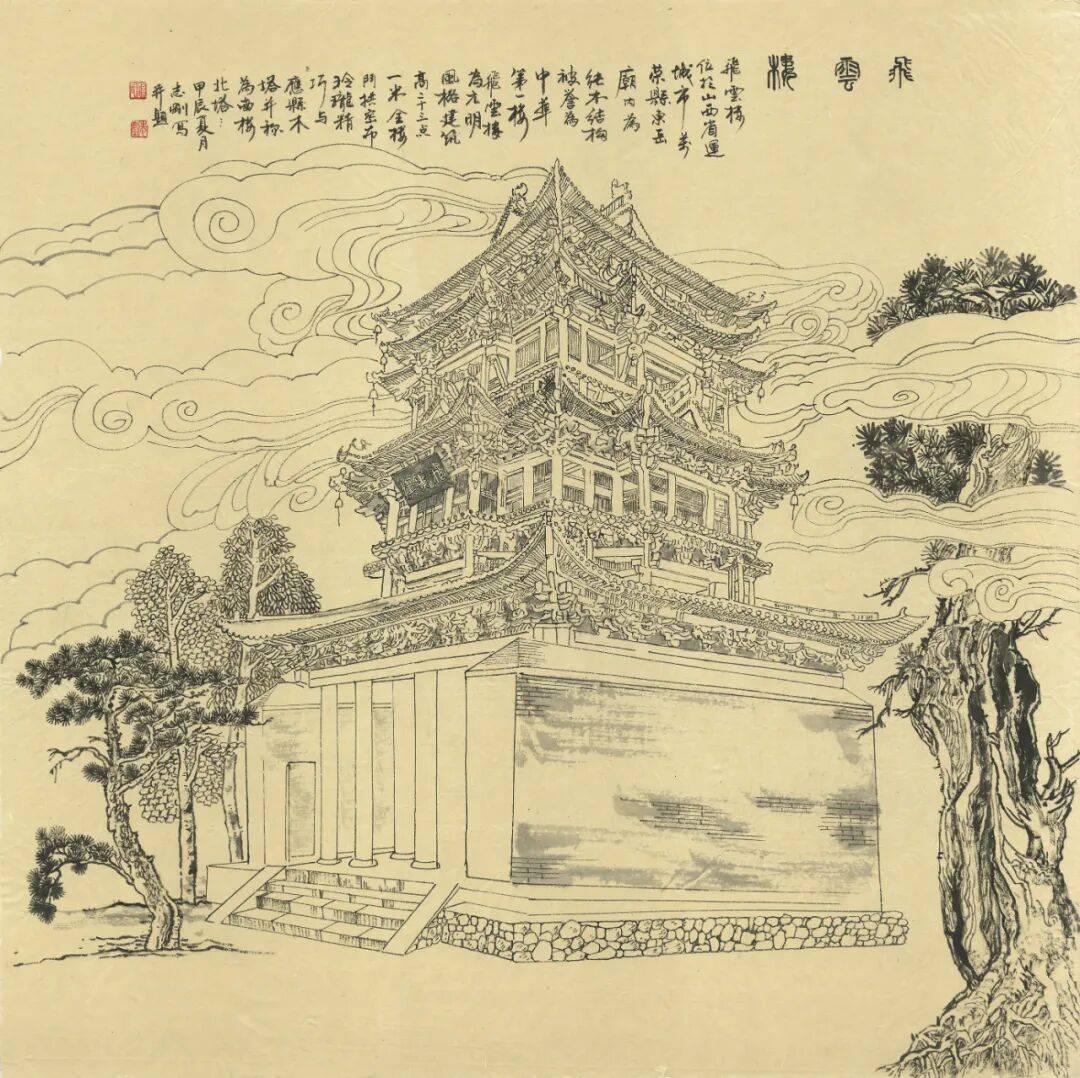 飛雲樓
飛雲楼
位於山西省運
城市萬
榮縣東岳
廟内為
純木结构
被誉為
中華
第一楼
飛雲楼
為元明
風格建筑
高二十三点
一米全楼
鬥拱密布
玲瓏精
巧与
應縣木
塔并称
為南楼
北塔：
甲辰夏月
志刚寫
并題